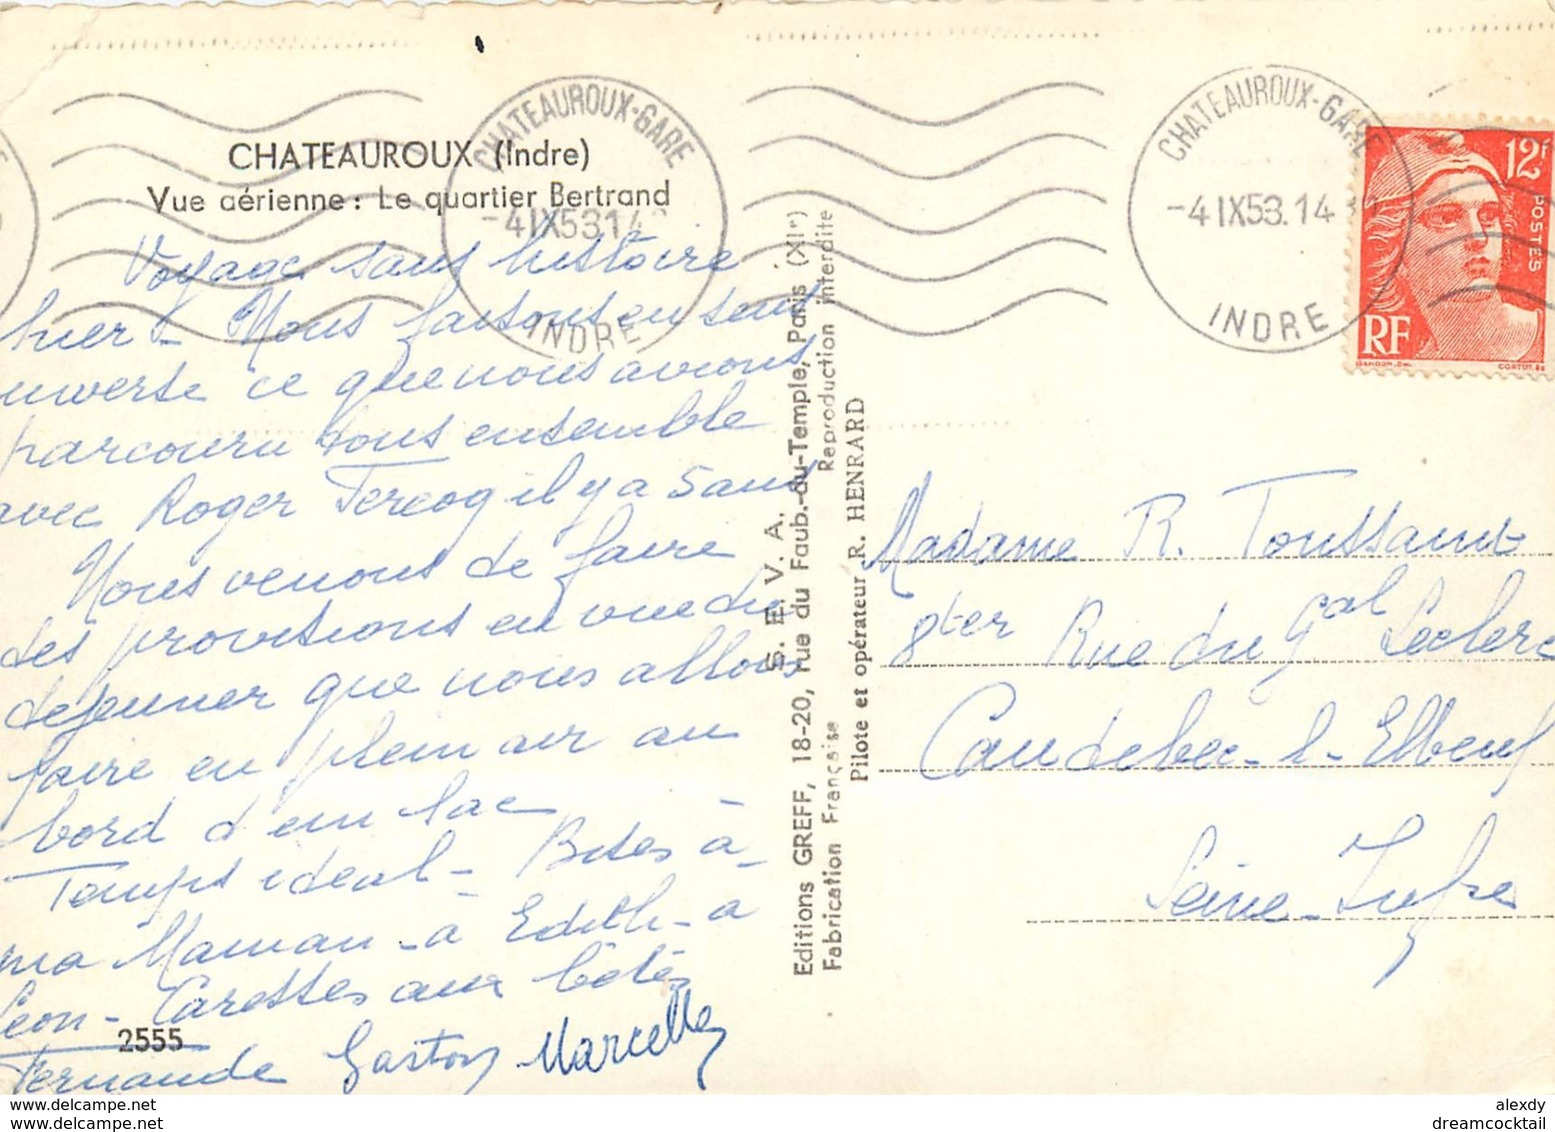 CHATEAUROUX (Indre)
Vue aérienne : Le quartier Bertrand
CHATEAUROUX-GARE
-4 IX53.14
INDRE
CHATEAUROUX-GARE
-4 IX53.14
INDRE
12f
POSTES
RF
GANDON.DEL.
CORTOT.SC
Voyage sans histoire
hier - Nous faisons en sens
inverse ce que nous avions
parcouru tous ensemble
avec Roger il y a 5 ans
Nous venons de faire
des provisions en vue du
déjeuner que nous allons
faire en plein air au
bord d'un lac
Temps idéal - Bises à
ma Maman - à Edith - à
Léon - Caresses aux bêtes
Fernande Gaston Marcelle
2555
S. E. V. A.
Editions GREFF, 18-20, rue du Faub.-du-Temple, Paris (XIe)
Fabrication Française Reproduction interdite
Pilote et opérateur R. HENRARD
Madame R. Toussaint
8ter Rue du Gal Leclerc
Caudebec-l-Elbeuf
Seine-Infre
www.delcampe.net
alexdy
www.delcampe.net
dreamcocktail